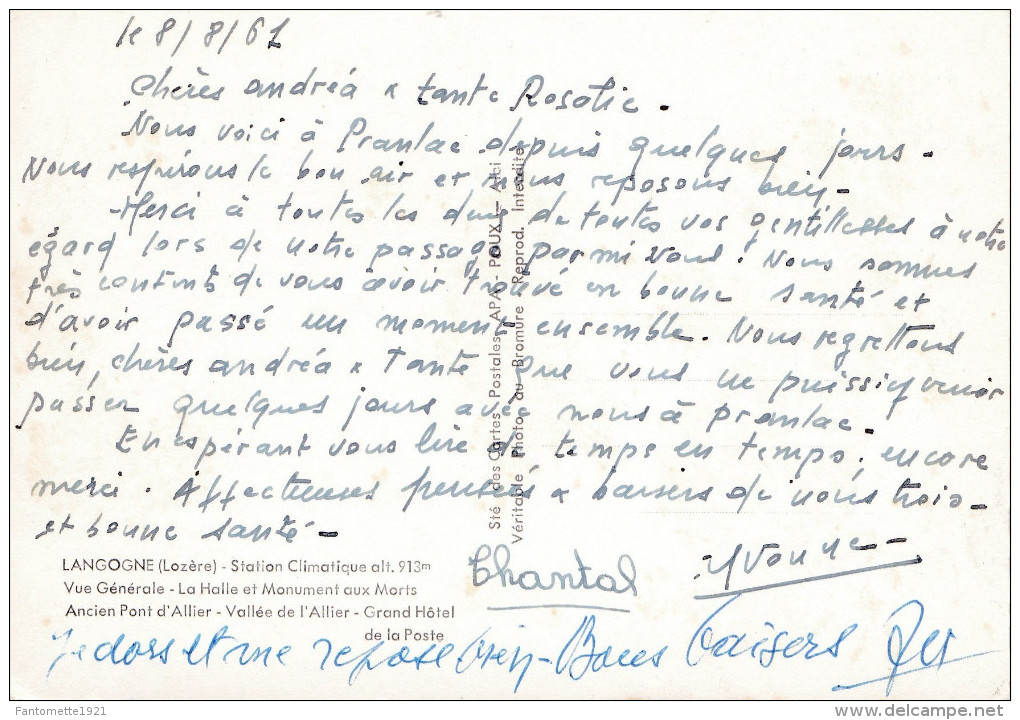 le 8/8/61
Chères andréa & tante Rosalie.
Nous voici à Pranlac depuis quelques jours -
Nous respirons le bon air et nous reposons bien -
Merci à toutes les deux de toutes vos gentillesses à notre
égard lors de notre passage parmi vous ! Nous sommes
très contents de vous avoir trouvé en bonne santé et
d'avoir passé un moment ensemble. Nous regrettons
bien, chères andréa & tante que vous ne puissiez venir
passer quelques jours avec nous à pranlac.
En espérant vous lire de temps en temps, encore
merci. Affectueuses pensées & baisers de nous trois -
et bonne santé -
Yvonne -
Chantal
LANGOGNE (Lozère) - Station Climatique alt. 913m
Vue Générale - La Halle et Monument aux Morts
Ancien Pont d'Allier - Vallée de l'Allier - Grand Hôtel
de la Poste
Je dors et me repose bien - Bons baisers
Sté des Cartes Postales APA - POUX - Albi
Véritable Photo au Bromure - Reprod. Interdite
Fantomette1921